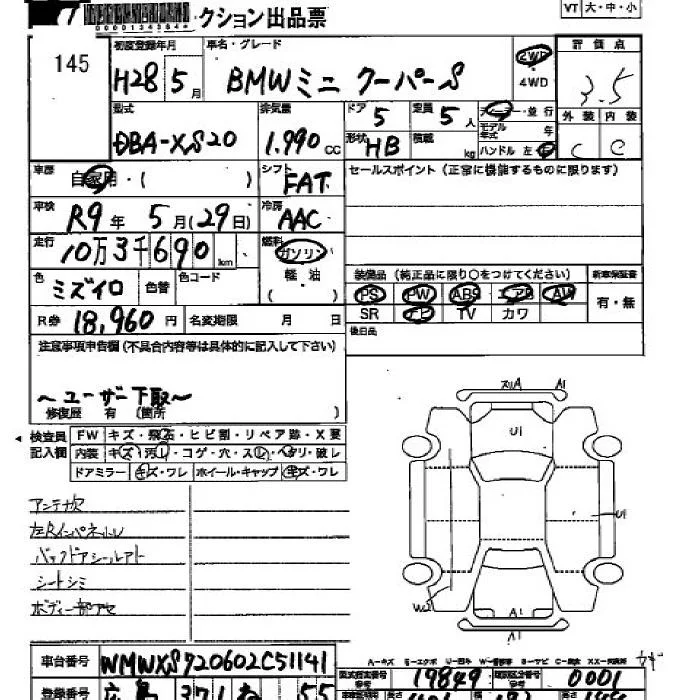 クション出品票
VT 大・中・小
00001343844
145
初度登録年月
車名・グレード
評価点
H28 5月
BMWミニ クーパーS
2WD
4WD
3.5
型式
排気量
ドア 5
定員 5人
ディーラー・並行
外装 内装
DBA-XS20
1,990 CC
形状 HB
積載 kg
モデル年式 年
ハンドル 左・右
C C
車歴
自家用・( )
シフト
FAT
セールスポイント (正常に機能するものに限ります)
車検
R9年 5月(29日)
冷房
AAC
走行
10万3千690km
燃料
ガソリン
軽・油
( )
色
ミズイロ
色替
色コード
装備品 (純正品に限り○をつけてください)
新車保証書
PS PW ABS エアB AW
有・無
SR ナビ TV カワ
R券 18,960円
名変期限 月 日
後日品
注意事項申告欄(不具合内容等は具体的に記入して下さい)
~ユーザー下取~
修復歴 有 (箇所 )
検査員
記入欄
FW キズ・飛石・ヒビ割・リペア跡・X要
内装 キズ・汚レ・コゲ・穴・スレ・ヘタリ・破レ
ドアミラー キズ・ワレ ホイール・キャップ キズ・ワレ
アンテナ欠
左Rインパネトルレ
バックドアシールアト
シートシミ
ボディ一部アセ
A1
U1
U1
W2
A1
A1
A-キズ E-エクボ U-凹キ W-補修等 S-サビ C-腐食 XX-交換済
車台番号 WMWXS720602C51141
型式指定番号 19849
類別区分番号 0001
登録番号 広島 371 ね 55